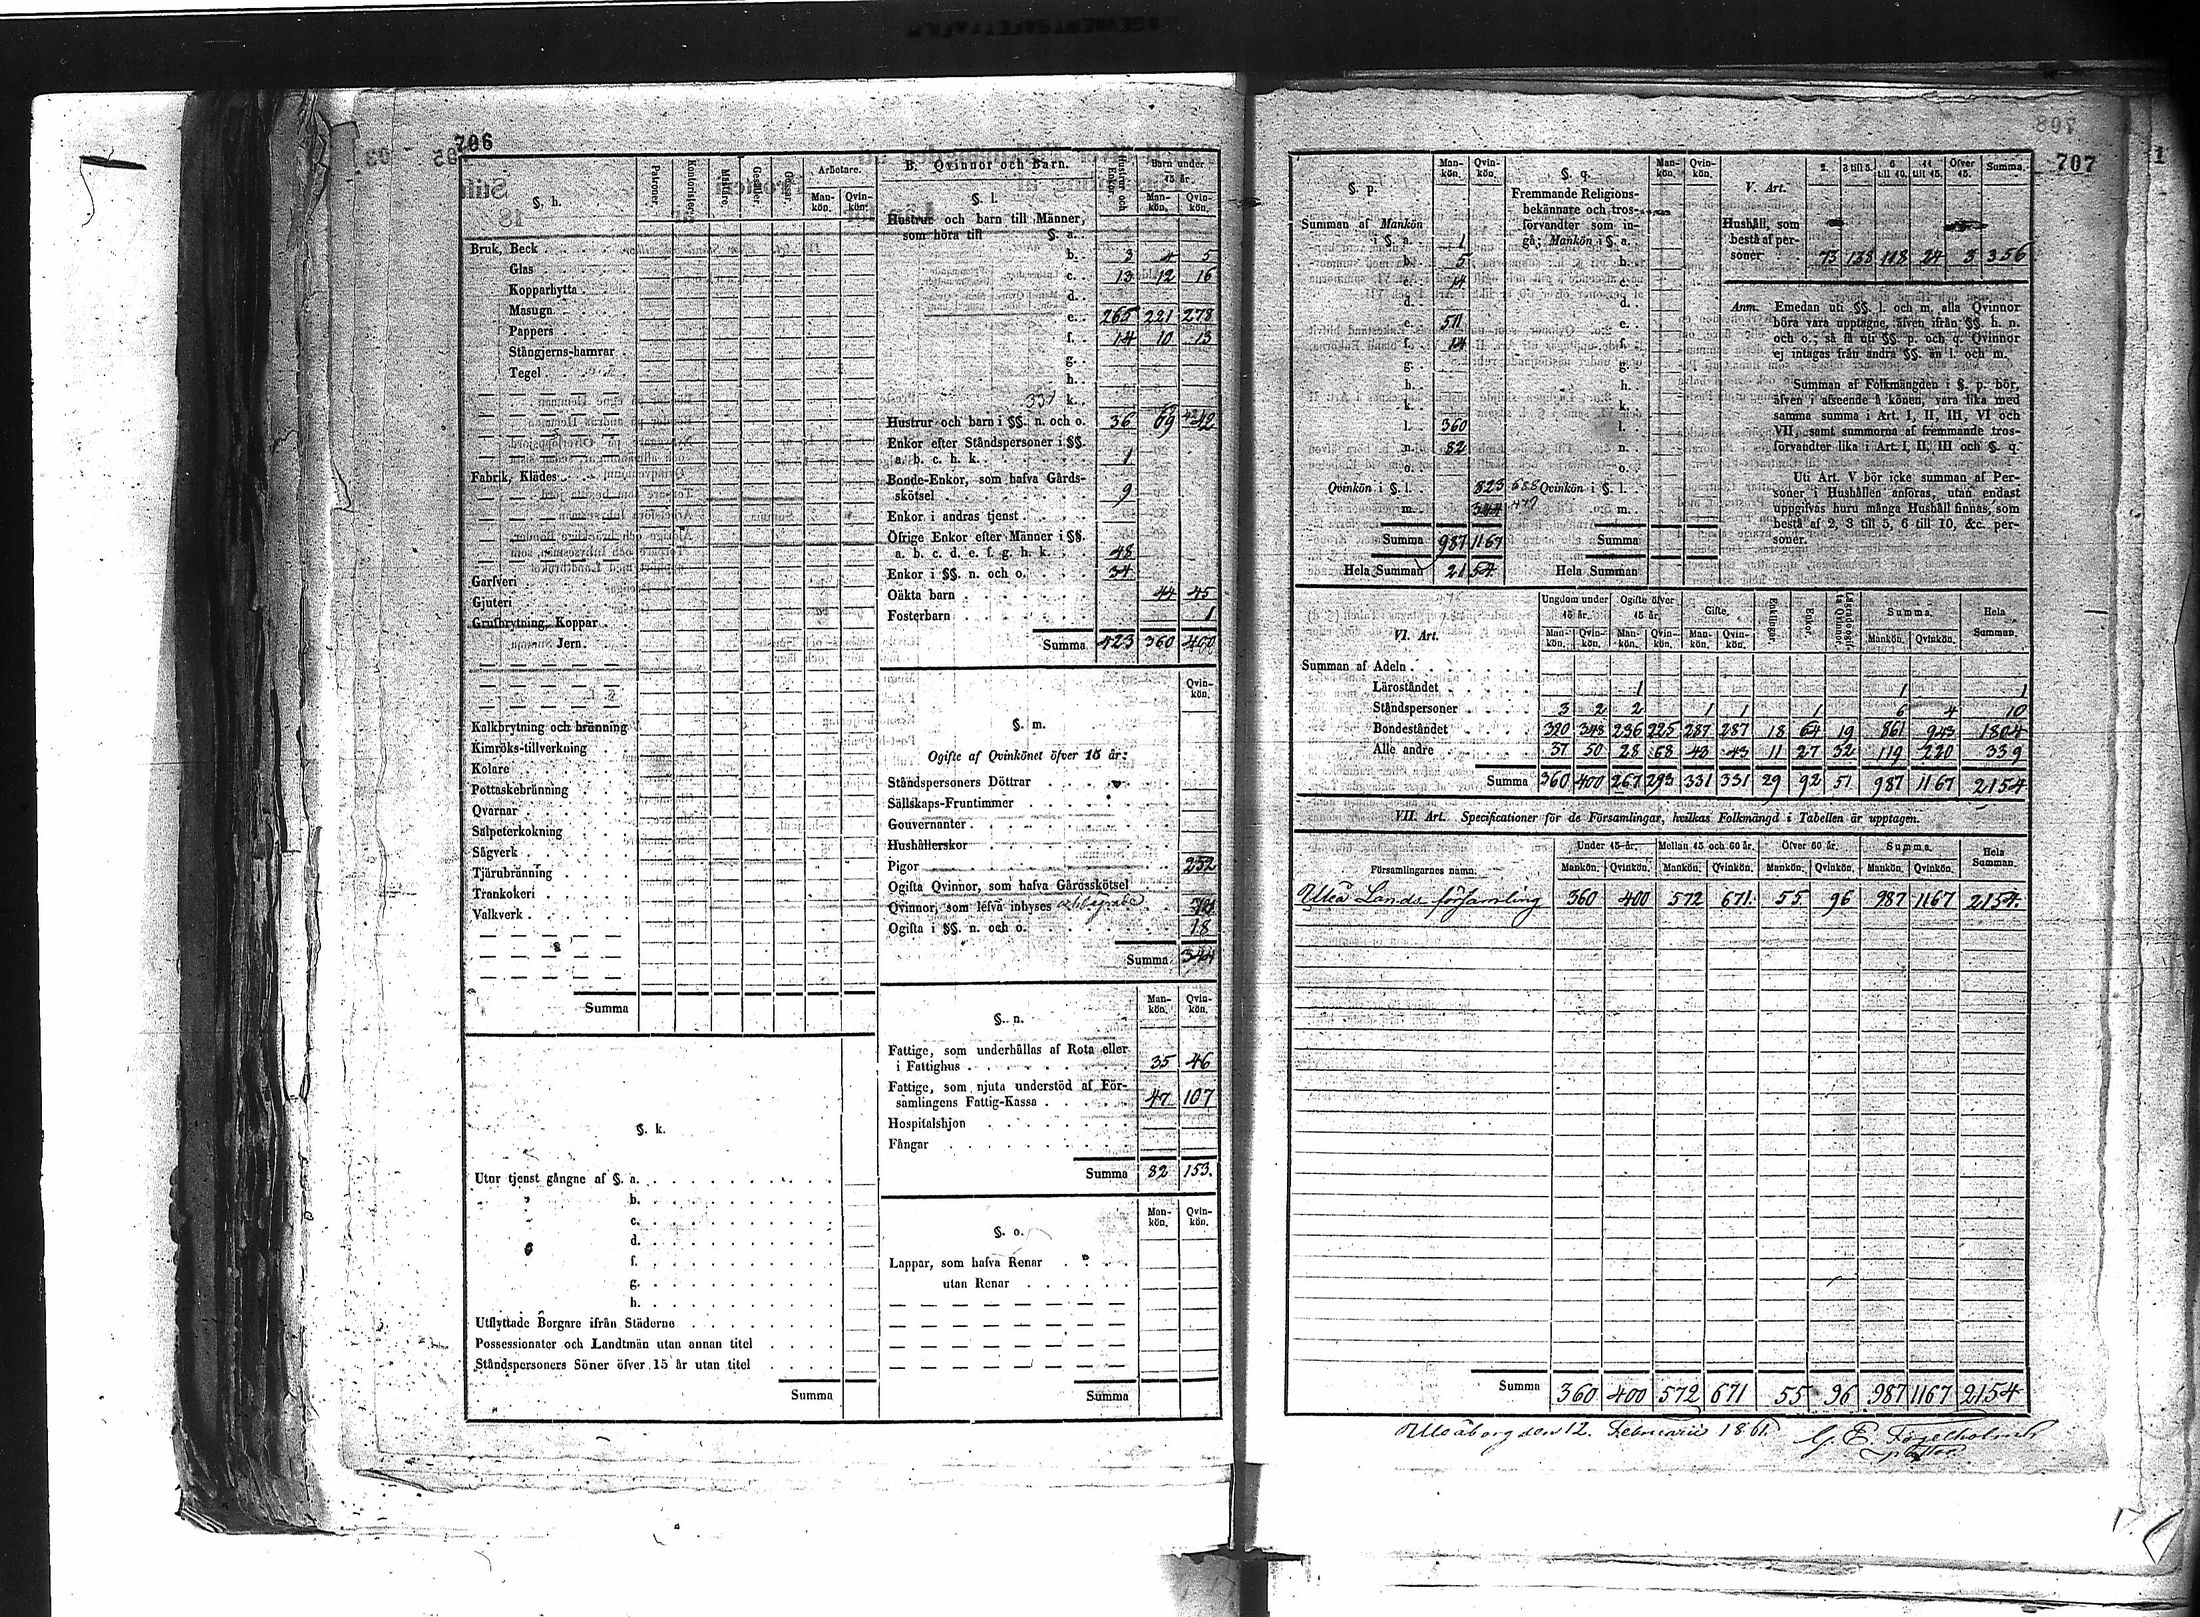 706
§. h.
Patroner. Kontorister. Mästare. Gesäller. Gossar. Arbetare. Mankön. Qvinkön.
Bruk, Beck
Glas
Kopparhytta
Masugn
Pappers
Stångjerns-hamrar
Tegel
Fabrik, Klädes
Garfveri
Gjuteri
Grufbrytning, Koppar
Jern.
Kalkbrytning och bränning
Kimröks-tillverkning
Kolare
Pottaskebränning
Qvarnar
Salpeterkokning
Sågverk
Tjärubränning
Trankokeri
Valkverk
Summa
§. k.
Utur tjenst gångne af §. a.
b.
c.
d.
f.
g.
h.
Utflyttade Borgare ifrån Städerne
Possessionater och Landtmän utan annan titel
Ståndspersoners Söner öfver 15 år utan titel
Summa
B. Qvinnor och Barn.
Hustrur och Enkor. Barn under 15 år. Mankön. Qvinkön.
§. l.
Hustrur och barn till Männer,
som höra till §. a.
b. 3 4 5
c. 13 12 16
d.
e. 265 221 278
f. 14 10 13
g.
h.
331 k.
Hustrur och barn i §§. n. och o. 36 69 42
Enkor efter Ståndspersoner i §§.
a. b. c. h. k. 1
Bonde-Enkor, som hafva Gårds-
skötsel 9
Enkor i andras tjenst
Öfrige Enkor efter Männer i §§.
a. b. c. d. e. f. g. h. k. 48
Enkor i §§. n. och o. 34
Oäkta barn 44 45
Fosterbarn 1
Summa 423 360 400
Qvinkön.
§. m.
Ogifte af Qvinkönet öfver 15 år:
Ståndspersoners Döttrar
Sällskaps-Fruntimmer
Gouvernanter
Hushållerskor
Pigor 252
Ogifta Qvinnor, som hafva Gårdsskötsel
Qvinnor, som lefva inhyses
Ogifta i §§. n. och o. 18
Summa 344
Mankön. Qvinkön.
§. n.
Fattige, som underhållas af Rota eller
i Fattighus 35 46
Fattige, som njuta understöd af För-
samlingens Fattig-Kassa 47 107
Hospitalshjon
Fångar
Summa 82 153.
Mankön. Qvinkön.
§. o.
Lappar, som hafva Renar
utan Renar
Summa
707
§. p. Mankön. Qvinkön.
Summan af Mankön
i §. a. 1
b. 5
c. 14
d.
e. 511
f. 14
g.
h.
k.
l. 360
n. 82
o.
Qvinkön i §. l. 823
m. 344
Summa 987 1167
Hela Summan 2154
§. q. Mankön. Qvinkön.
Fremmande Religions-
bekännare och tros-
förvandter som in-
gå; Mankön i §. a.
b.
c.
d.
e.
f.
g.
h.
k.
l.
n.
o.
Qvinkön i §. l.
m.
Summa
Hela Summan
V. Art. 2. 3 till 5. 6 till 10. 11 till 15. Öfver 15. Summa.
Hushåll, som
bestå af per-
soner 73 138 118 24 3 356
Anm. Emedan uti §§. l. och m. alla Qvinnor
böra vara upptagne, äfven ifrån §§. h. n.
och o.; så få uti §§. p. och q. Qvinnor
ej intagas från andra §§. än l. och m.
Summan af Folkmängden i §. p. bör,
äfven i afseende å könen, vara lika med
samma summa i Art. I, II, III, VI och
VII, samt summorna af fremmande tros-
förvandter lika i Art. I, II, III och §. q.
Uti Art. V bör icke summan af Per-
soner i Hushållen anföras, utan endast
uppgifvas huru många Hushåll finnas, som
bestå af 2, 3 till 5, 6 till 10, &c. per-
soner.
VI. Art. Ungdom under 15 år. Ogifte öfver 15 år. Gifte. Enklingar. Enkor. Summa. Hela Summan.
Mankön. Qvinkön. Mankön. Qvinkön. Mankön. Qvinkön. Mankön. Qvinkön.
Summan af Adeln
Läroståndet 1 1 1
Ståndspersoner 3 2 2 1 1 1 6 4 10
Bondeståndet 320 348 236 225 287 287 18 64 19 861 943 1804
Alle andre 37 50 28 68 43 43 11 27 32 119 220 339
Summa 360 400 267 293 331 331 29 92 51 987 1167 2154
VII. Art. Specificationer för de Församlingar, hvilkas Folkmängd i Tabellen är upptagen.
Församlingarnes namn. Under 15 år. Mellan 15 och 60 år. Öfver 60 år. Summa. Hela Summan.
Mankön. Qvinkön. Mankön. Qvinkön. Mankön. Qvinkön. Mankön. Qvinkön.
Uleå Lands församling 360 400 572 671 55 96 987 1167 2154.
Summa 360 400 572 671 55 96 987 1167 2154
Uleåborg den 12. Februarii 1861. G. E. Fogelholm
pastor.